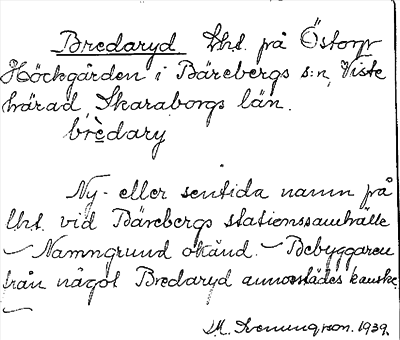 Bredaryd. Lht. på Östorp
Höckgården i Bärebergs s:n, Viste
härad Skaraborgs län.
brèdary
Ny- eller sentida namn på
lht. vid Bärebergs stationssamhälle
— Namngrund okänd. — Bebyggaren
från något Bredaryd annorstädes kanske
—
M. Svenungson. 1939.